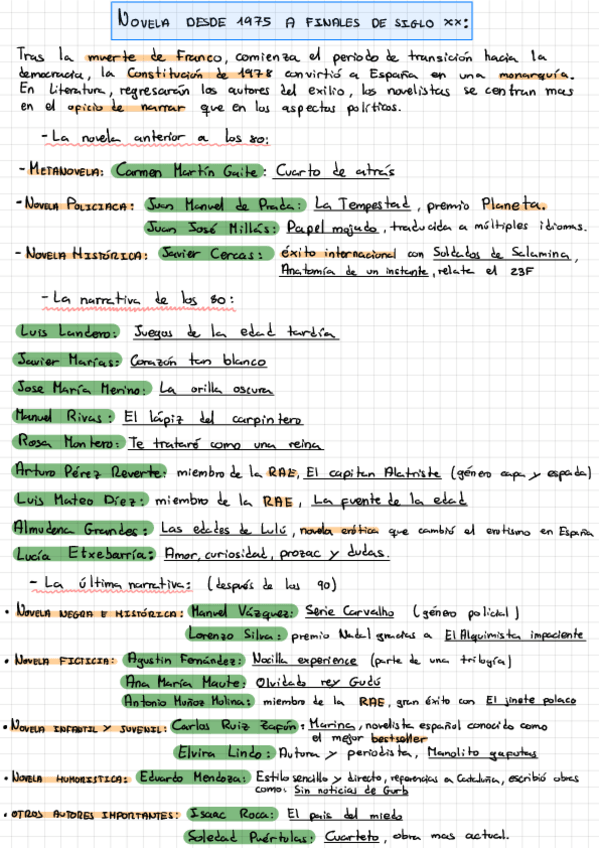 NOVELA DESDE 1975 A FINALES DE SIGLO XX:
Tras la muerte de Franco, comienza el periodo de transición hacia la
democracia, la Constitución de 1978 convirtió a España en una monarquía.
En Literatura, regresarán los autores del exilio, los novelistas se centran mas
en el oficio de narrar que en los aspectos políticos.
- La novela anterior a los 80:
- METANOVELA: Carmen Martín Gaite: Cuarto de atrás
- NOVELA POLICIACA: Juan Manuel de Prada: La Tempestad, premio Planeta.
Juan José Millás: Papel mojado, traducida a múltiples idiomas.
- NOVELA HISTÓRICA: Javier Cercas: éxito internacional con Soldados de Salamina,
Anatomía de un instante, relata el 23F
- La narrativa de los 80:
Luis Landero: Juegos de la edad tardía
Javier Marías: Corazón tan blanco
Jose María Merino: La orilla oscura
Manuel Rivas: El lápiz del carpintero
Rosa Montero: Te trataré como una reina
Arturo Pérez Reverte: miembro de la RAE, El capitan Alatriste (género capa y espada)
Luis Mateo Díez: miembro de la RAE, La fuente de la edad
Almudena Grandes: Las edades de Lulú, novela erótica que cambió el erotismo en España
Lucía Etxebarría: Amor, curiosidad, prozac y dudas.
- La última narrativa: (después de los 90)
• NOVELA NEGRA E HISTÓRICA: Manuel Vázquez: Serie Carvalho (género policial)
Lorenzo Silva: premio Nadal gracias a El Alquimista impaciente
• NOVELA FICTICIA: Agustin Fernández: Nocilla experience (parte de una trilogía)
Ana María Maute: Olvidado rey Gudú
Antonio Muñoz Molina: miembro de la RAE, gran éxito con El jinete polaco
• NOVELA INFANTIL Y JUVENIL: Carlos Ruiz Zafón: Marina, novelista español conocido como
el mejor bestseller
Elvira Lindo: Autora y periodista, Manolito gafotas
• NOVELA HUMORISTICA: Eduardo Mendoza: Estilo sencillo y directo, referencias a Cataluña, escribió obras
como: Sin noticias de Gurb
• OTROS AUTORES IMPORTANTES: Isaac Roca: El pais del miedo
Soledad Puértolas: Cuarteto, obra mas actual.